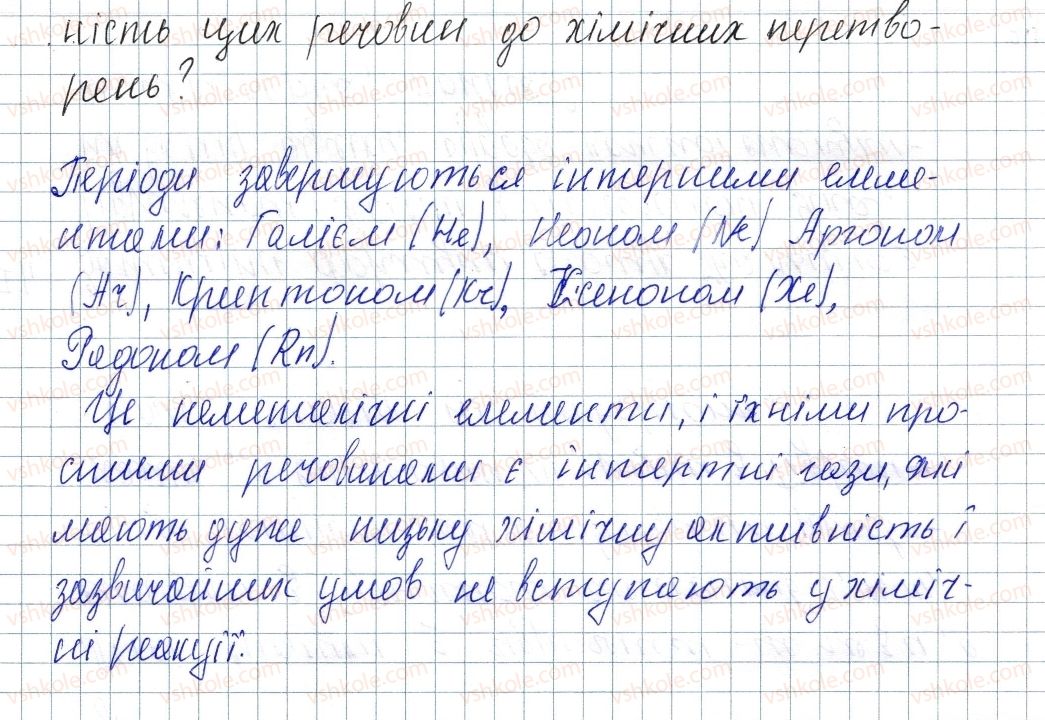 ність цих речовин до хімічних перетво-
рень?
Періоди завершуються інтерними елеме-
нтами: Галієм (He), Неоном (Ne) Аргоном
(Ar), Криптоном (Kr), Ксеноном (Xe),
Радоном (Rn).
Це неметалічні елементи, і їхніми про-
стими речовинами є інтертні гази, які
мають дуже низьку хімічну активність і
зазвичайних умов не вступають у хіміч-
ні реакції.